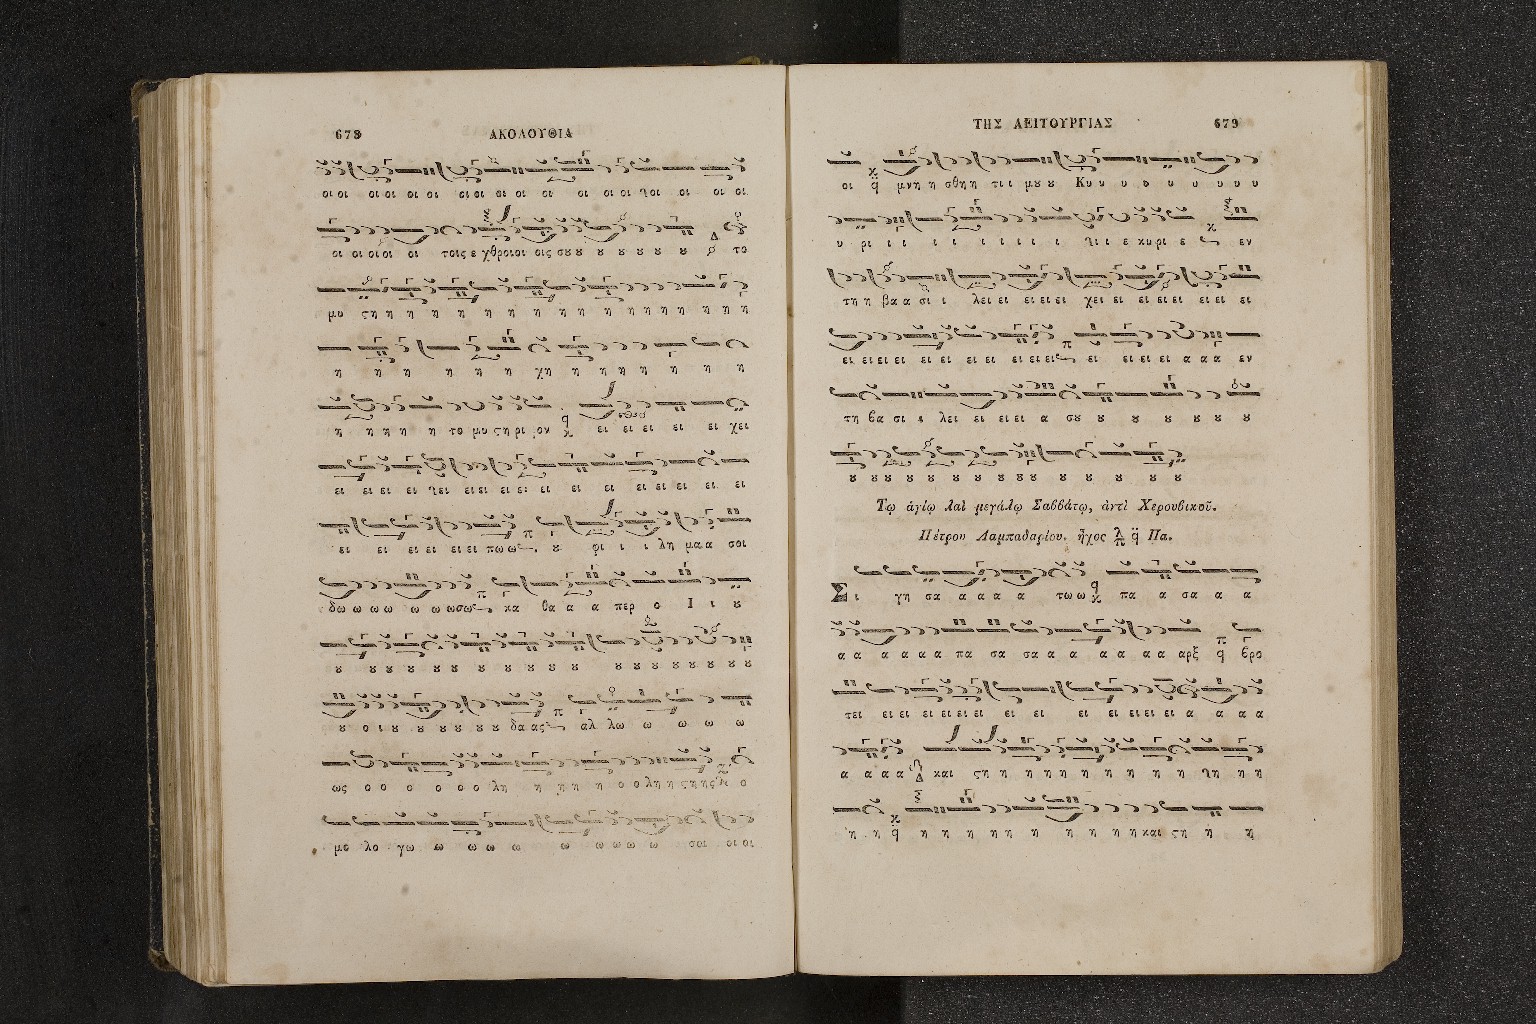 678 ΑΚΟΛΟΥΘΙΑ
οι οι οι οι οι οι οι οι οι οι οι οι οι οι οι οι οι οι οι
οι οι οι οι οι τοις ε χθροιοι οις σου ου ου ου ου ου το
μυ ςη η η η η η η η η η η η η η η η
η η η η η η χη η η η η η η η
η η η η η το μυ ςη ρι ον ει ει ει ει ει χει
ει ει ει ει ει ει ει ει ει ει ει ει ει ει ει ει
ει ει ει ει ει ει πω ω ου φι ι ι λη μα α σοι
δω ω ω ω ω ω ω σω κα θα α α περ ο Ι ι ου
ου ου ου ου ου ου ου ου ου ου ου ου ου ου ου ου ου ου
ου ο ι ου ου ου ου ου ου δα ας αλ λω ω ω ω ω
ως ο ο ο ο ο ο λη η η η η ο ο λη η ςη ης ο
μο λο γω ω ω ω ω ω ω ω ω ω σοι οι οι
ΤΗΣ ΛΕΙΤΟΥΡΓΙΑΣ 679
οι μνη η σθη η τι ι μου ου Κυ υ υ υ υ υ υ υ υ
υ ρι ι ι ι ι ι ι ι ι ι ε κυρι ε εν
τη η βα α σι ι λει ει ει ει ει χει ει ει ει ει ει ει ει
ει ει ει ει ει ει ει ει ει ει ει ει ει ει ει α α α εν
τη βα σι ι λει ει ει ει α σου ου ου ου ου ου ου
ου ου ου ου ου ου ου ου ου ου ου ου ου ου
Τῳ ἁγίῳ καὶ μεγάλῳ Σαββάτῳ, ἀντὶ Χερουβικοῦ.
Πέτρου Λαμπαδαρίου. ἦχος λ π q Πα.
Σι γη σα α α α α τω ω πα α σα α α
α α α α α α πα σα σα α α α α α α αρξ βρο
τει ει ει ει ει ει ει ει ει ει ει ει ει ει α α α α
α α α α και ςη η η η η η η η η η η η η
η η η η η η η η η η η η και ςη η η